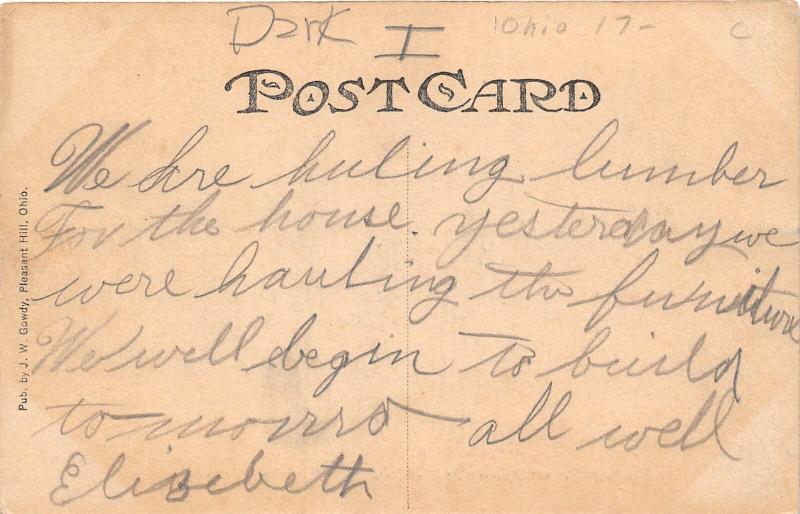 Dark I Ohio 17- C
POST CARD
We are huling lumber
For the house. yesterday we
were hauling the furniture
We will begin to build
to morro all well
Elizebeth
Pub. by J. W. Gowdy, Pleasant Hill, Ohio.